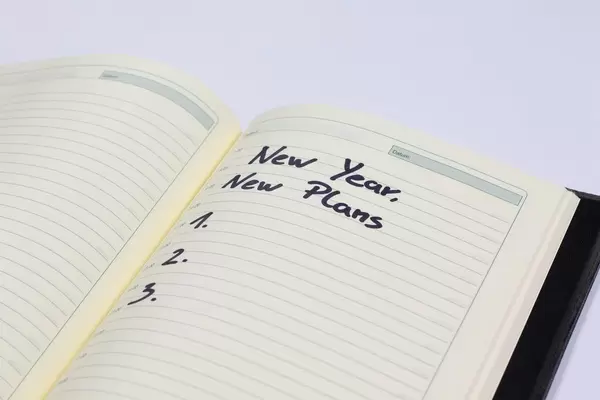 Datum
New Year,
New Plans
1.
2.
3.